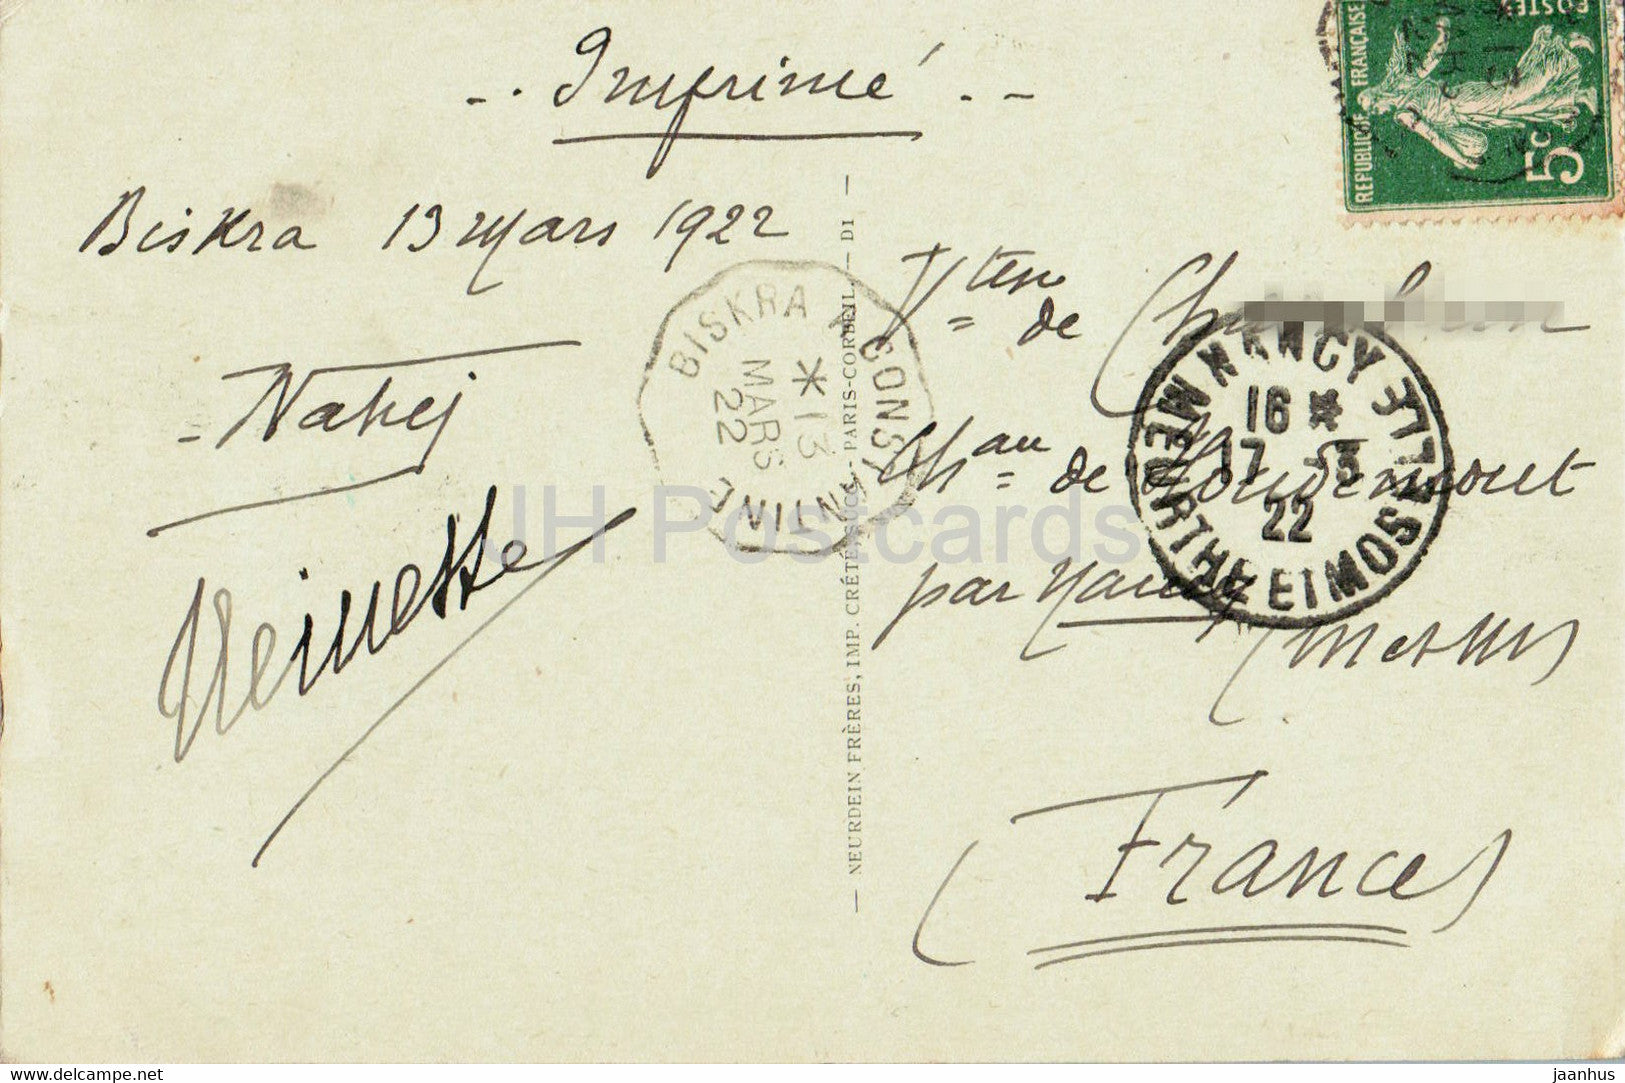 - . Imprimé . -
Biskra 13 Mars 1922
- Nahej
BISKRA A CONSTANTINE
* 13
MARS
22
Vten de
Chau de
par Nancy
(France)
NANCY
MEURTHE ET MOSELLE
16 *
17 -3
22
RÉPUBLIQUE FRANÇAISE
POSTES
5c
— NEURDEIN FRÈRES, IMP. CRÉTÉ, SUCC. - PARIS-CORBEIL. — DI —
JH Postcards
www.delcampe.net
jaanhus